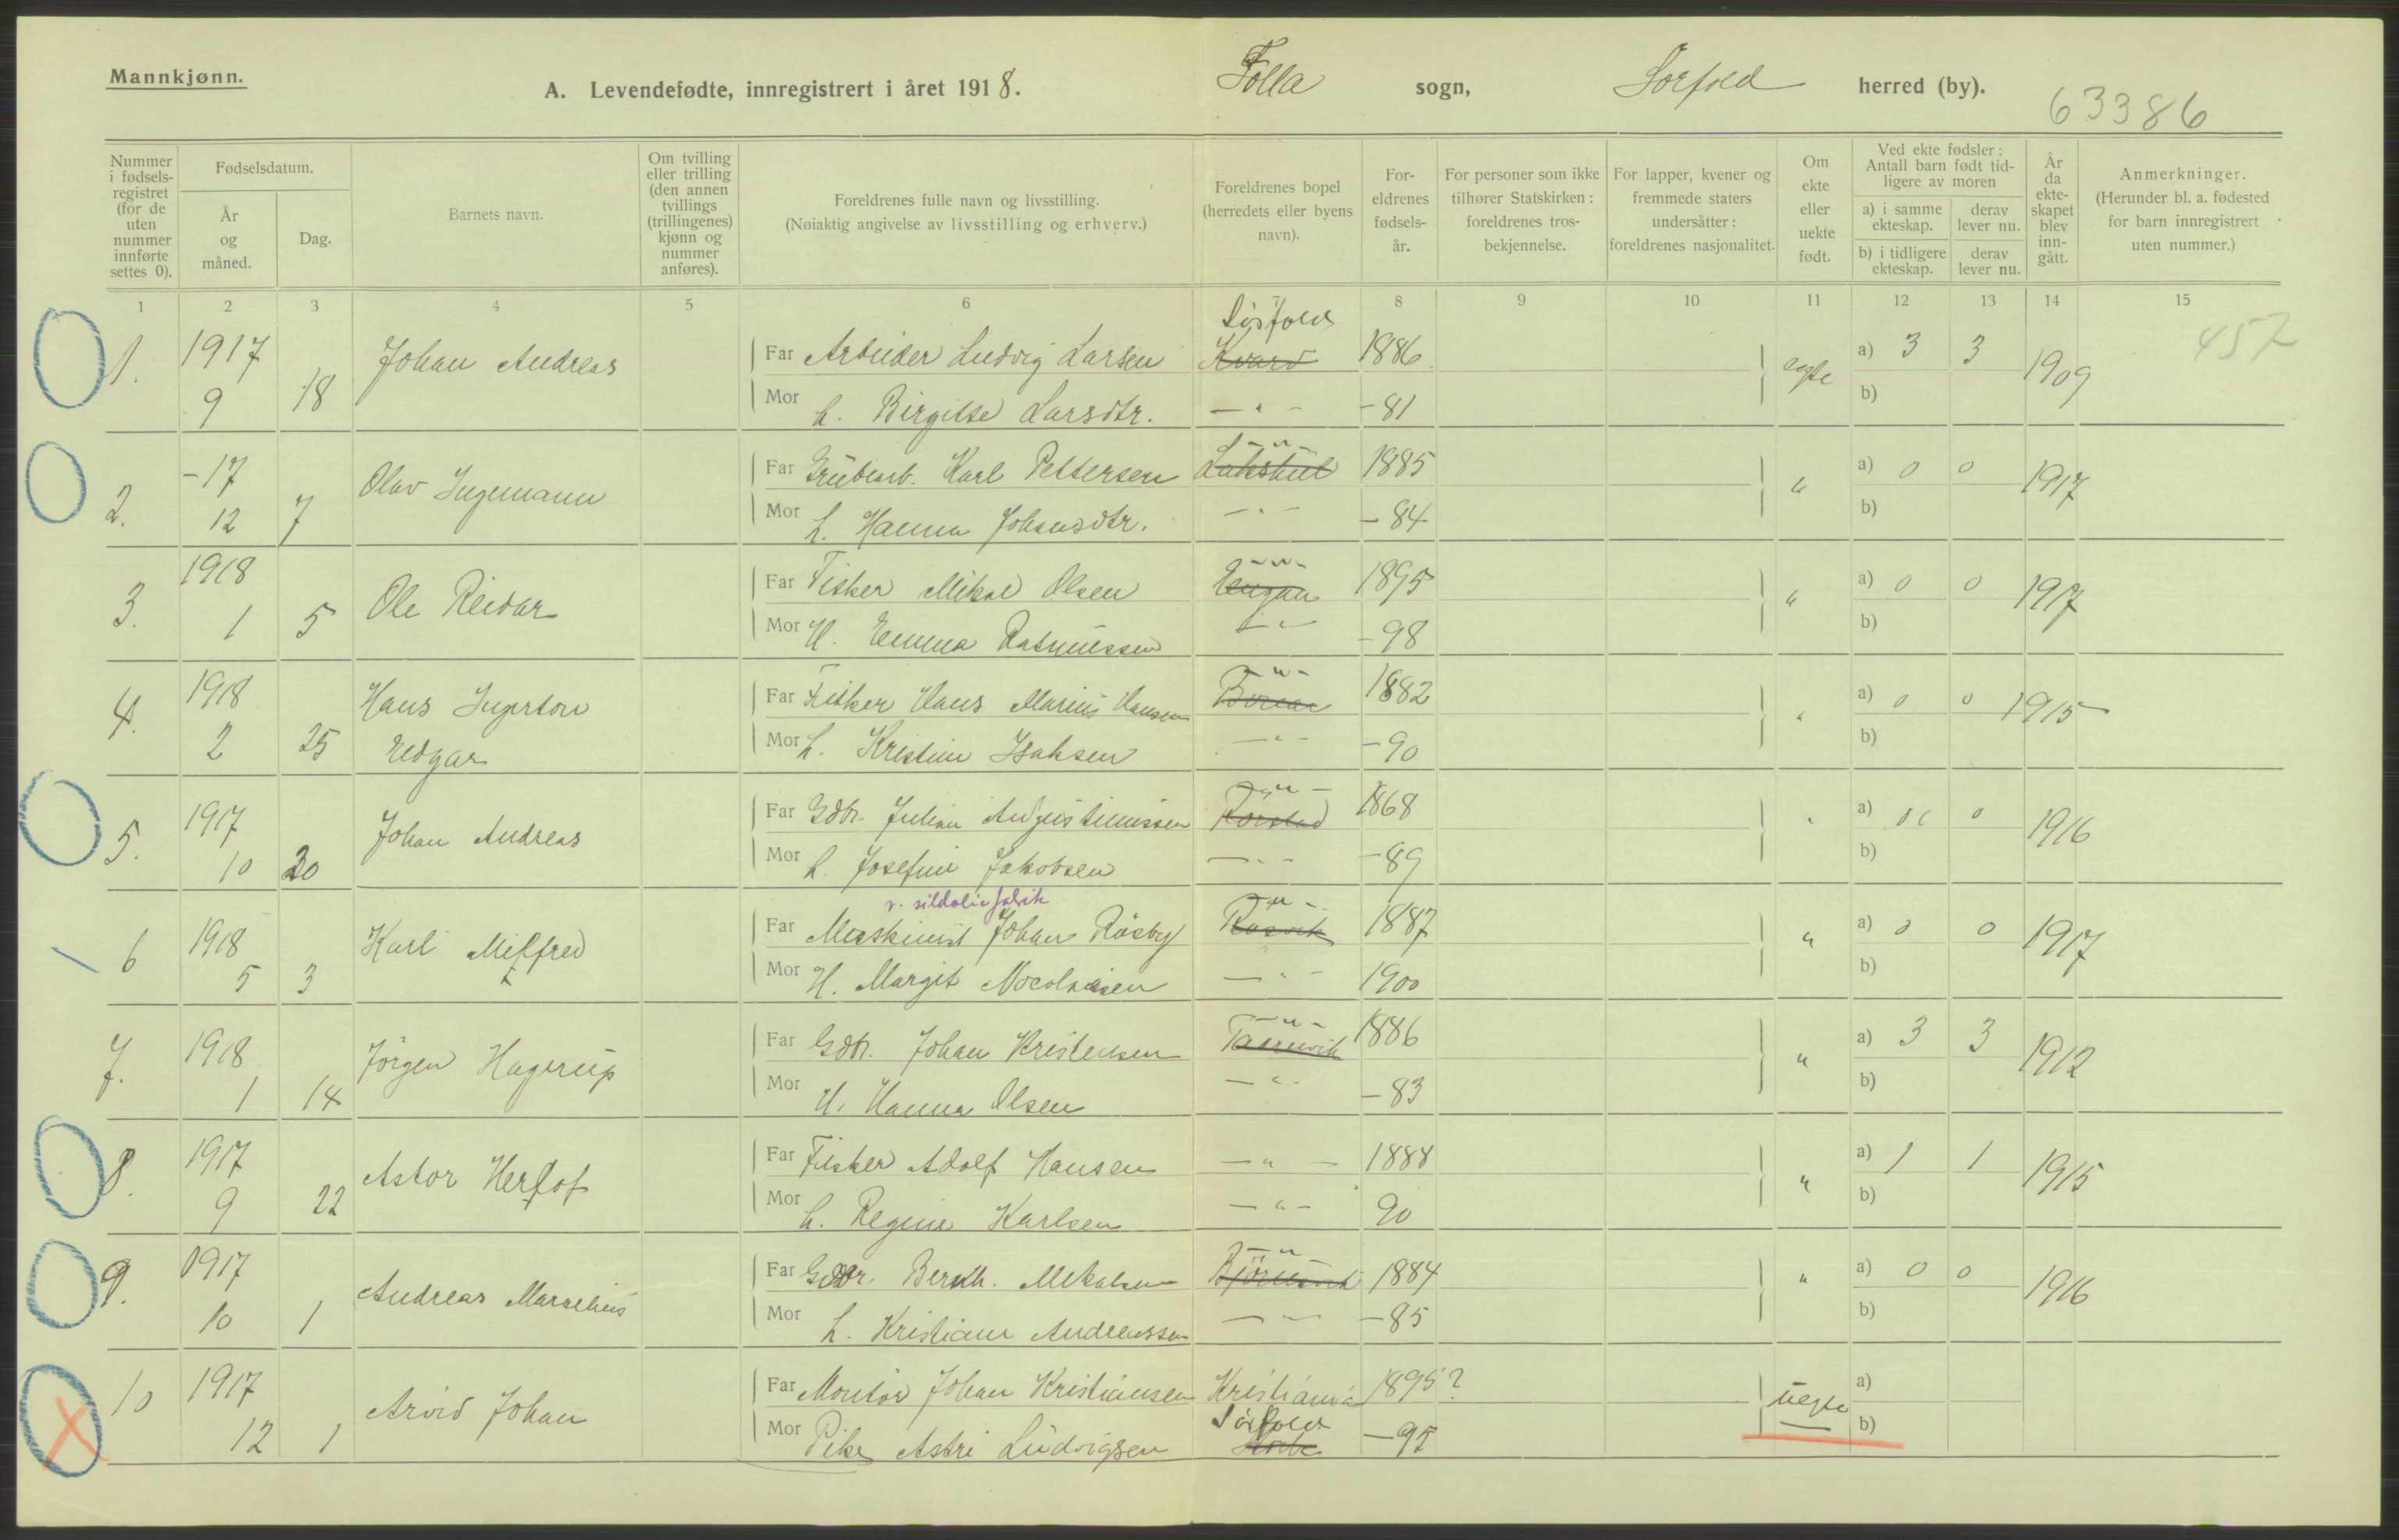 Mannkjønn.
A. Levendefødte, innregistrert i året 1918.
Folla sogn, Sørfold herred (by).
63386
Nummer i fødselsregistret (for de uten nummer innførte settes 0).
Fødselsdatum.
År og måned.
Dag.
Barnets navn.
Om tvilling eller trilling (den annen tvillings (trillingenes) kjønn og nummer anføres).
Foreldrenes fulle navn og livsstilling.
(Nøiaktig angivelse av livsstilling og erhverv.)
Foreldrenes bopel (herredets eller byens navn).
Foreldrenes fødselsår.
For personer som ikke tilhører Statskirken: foreldrenes trosbekjennelse.
For lapper, kvener og fremmede staters undersåtter: foreldrenes nasjonalitet.
Om ekte eller uekte født.
Ved ekte fødsler: Antall barn født tidligere av moren
a) i samme ekteskap. derav lever nu.
b) i tidligere ekteskap. derav lever nu.
År da ekteskapet blev inngått.
Anmerkninger.
(Herunder bl. a. fødested for barn innregistrert uten nummer.)
1 2 3 4 5 6 7 8 9 10 11 12 13 14 15
457
1. 1917 9 18 Johan Andreas
Far Arbeider Ludvig Larsen Sörfold Kvarv 1886 egte a) 3 3 1909
Mor h. Birgitte Larsdtr. — " — - 81 b)
2. - 17 12 7 Olav Ingemann
Far Grübearb. Karl Pettersen — " — Lakshül 1885 " a) 0 0 1917
Mor h. Hanna Johansdtr. — " — - 84 b)
3. 1918 1 5 Ole Reidar
Far Fisker Mikal Olsen — " — Engan 1895 " a) 0 0 1917
Mor H. Emma Rasmussen — " — - 98 b)
4. 1918 2 25 Hans Ingerton Edgar
Far Fisker Hans Marius Hansen — " — 1882 " a) 0 0 1915
Mor h. Kristine Isaksen — " — - 90 b)
5. 1917 10 20 Johan Andreas
Far Gdbr. Julian Augustinussen — " — Rörstad 1868 " a) 0 0 1916
Mor h. Josefine Jakobsen — " — - 89 b)
v. sildoliefabrik
6 1918 5 3 Karl Milfred
Far Maskinist Johan Råsby — " — Røsvik 1887 " a) 0 0 1917
Mor H. Margit Nocolaisen — " — 1900 b)
7. 1918 1 14 Jörgen Hagerup
Far Gdbr. Johan Kristensen — " — Taarnvik 1886 " a) 3 3 1912
Mor H. Hanna Olsen — " — - 83 b)
8. 1917 9 22 Astor Herlof
Far Fisker Adolf Hansen — " — 1888 " a) 1 1 1915
Mor h. Regine Karlsen — " — 90 b)
9. 1917 10 1 Andreas Marselius
Far Gdbr. Bernh. Mikalsen — " — Björnsvik 1884 " a) 0 0 1916
Mor h. Kristiane Andreassen — " — - 85 b)
10 1917 12 1 Arvid Johan
Far Montör Johan Kristiansen Kristiania 1895? uegte a)
Mor Pike Astri Ludvigsen Sörfold - 95 b)